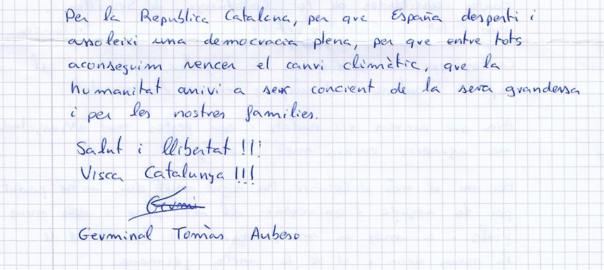 Per la Republica Catalana, per que España desperti i
assoleixi una democracia plena, per que entre tots
aconseguim vencer el canvi climàtic, que la
humanitat arrivi a ser concient de la seva grandessa
i per les nostres families.
Salut i llibertat !!!
Visca Catalunya !!!
Germi
Germinal Tomàs Aubeso